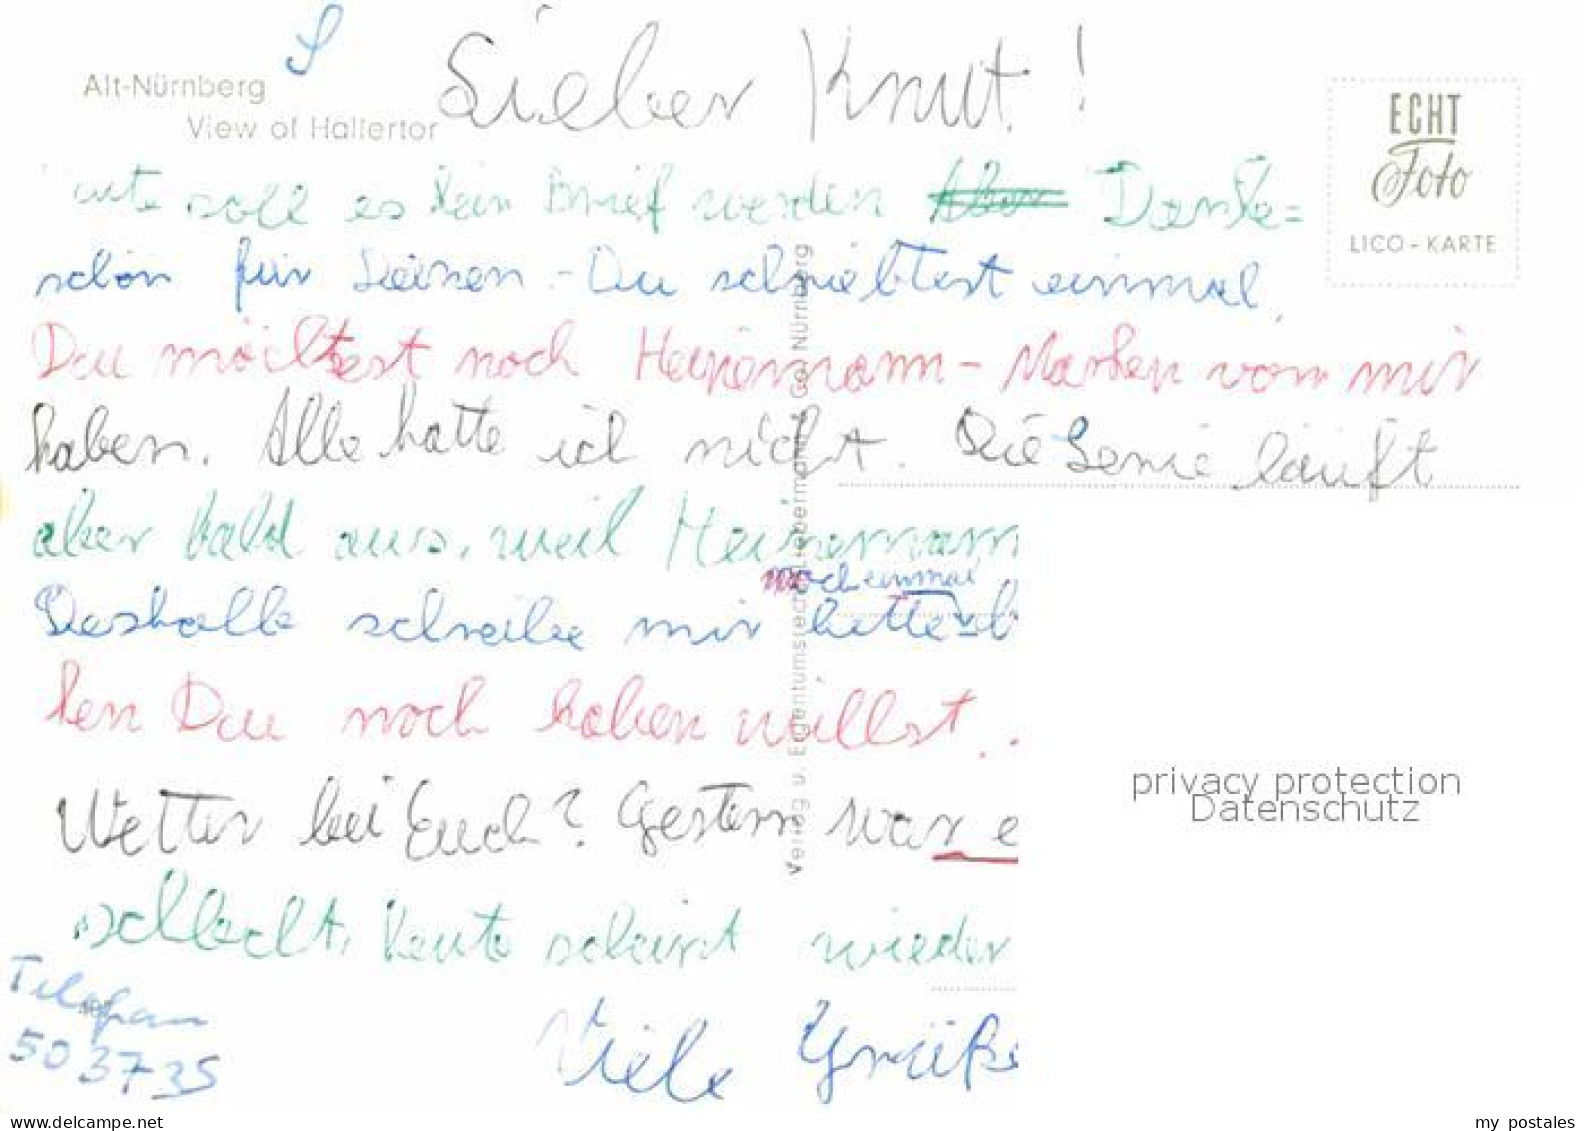 S
Alt-Nürnberg
View of Hallertor
Lieber Knut!
eute soll es kein Brief werden Aber Danke=
schön für Deinen - Du schriebtest einmal,
Du möchtest noch Heinemann-Marken von mir
haben. Alle hatte ich nicht. Die Serie läuft
aber bald aus, weil Heinemann
noch einmal
Deshalb schreibe mir bitte
ken Du noch haben willst.
Wetter bei Euch? Gestern war e
schlecht, heute scheint wieder
Telefon
503735
Viele Grüße
Verlag u. Eigentum Liebermann & Co., Nürnberg
ECHT
Foto
LICO-KARTE
privacy protection
Datenschutz
www.delcampe.net
my_postales